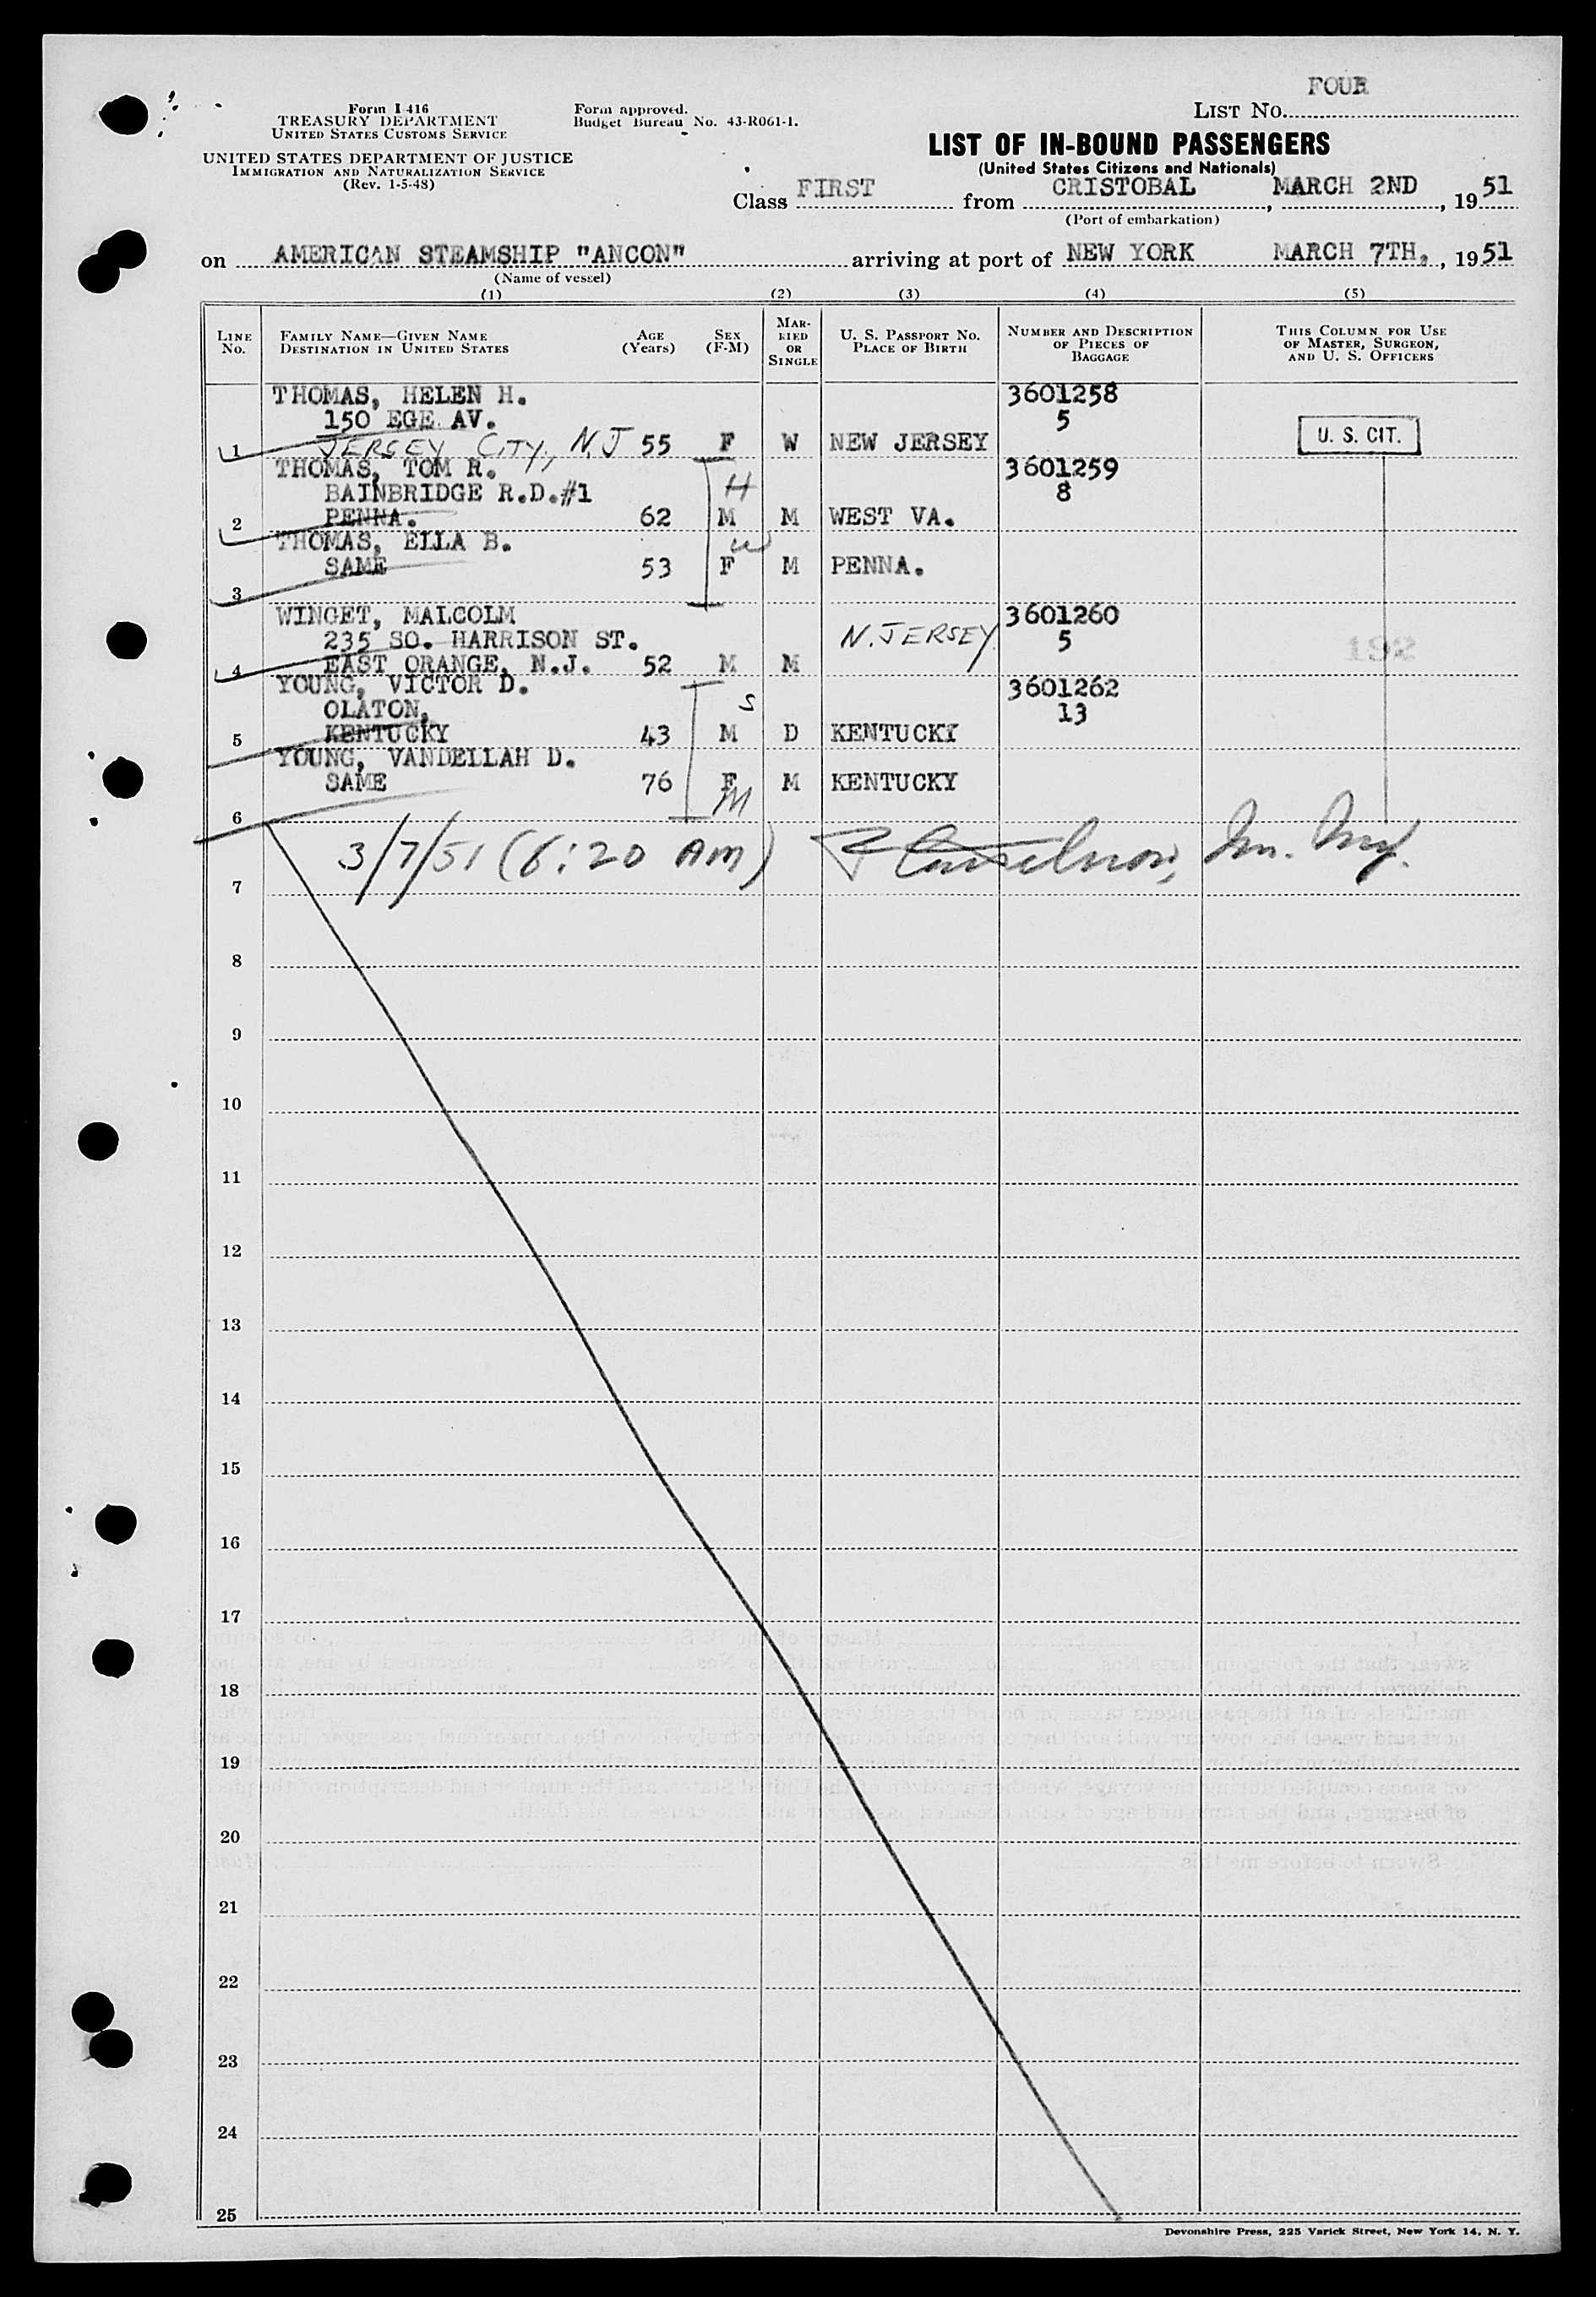 FOUR
Form I-416
TREASURY DEPARTMENT
UNITED STATES CUSTOMS SERVICE
Form approved.
Budget Bureau No. 43-R061-1.
LIST NO.
UNITED STATES DEPARTMENT OF JUSTICE
IMMIGRATION AND NATURALIZATION SERVICE
(Rev. 1-5-48)
LIST OF IN-BOUND PASSENGERS
(United States Citizens and Nationals)
Class FIRST from CRISTOBAL, MARCH 2ND, 1951
(Port of embarkation)
on AMERICAN STEAMSHIP "ANCON" arriving at port of NEW YORK MARCH 7TH., 1951
(Name of vessel)
(1) (2) (3) (4) (5)
LINE NO. FAMILY NAME—GIVEN NAME DESTINATION IN UNITED STATES AGE (Years) SEX (F-M) MARRIED OR SINGLE U. S. PASSPORT NO. PLACE OF BIRTH NUMBER AND DESCRIPTION OF PIECES OF BAGGAGE THIS COLUMN FOR USE OF MASTER, SURGEON, AND U. S. OFFICERS
THOMAS, HELEN H. 3601258
150 EGE AV. 5
1 JERSEY CITY, N.J 55 F W NEW JERSEY U. S. CIT.
THOMAS, TOM R. 3601259
BAINBRIDGE R.D.#1 H 8
2 PENNA. 62 M M WEST VA.
THOMAS, ELLA B. W
SAME 53 F M PENNA.
3
WINGET, MALCOLM 3601260
235 SO. HARRISON ST. N. JERSEY 5 192
4 EAST ORANGE, N.J. 52 M M
YOUNG, VICTOR D. S 3601262
OLATON, 13
5 KENTUCKY 43 M D KENTUCKY
YOUNG, VANDELLAH D.
SAME 76 F M KENTUCKY
6 M
3/7/51 (6:20 AM)
7
8
9
10
11
12
13
14
15
16
17
18
19
20
21
22
23
24
25
Devonshire Press, 225 Varick Street, New York 14, N. Y.